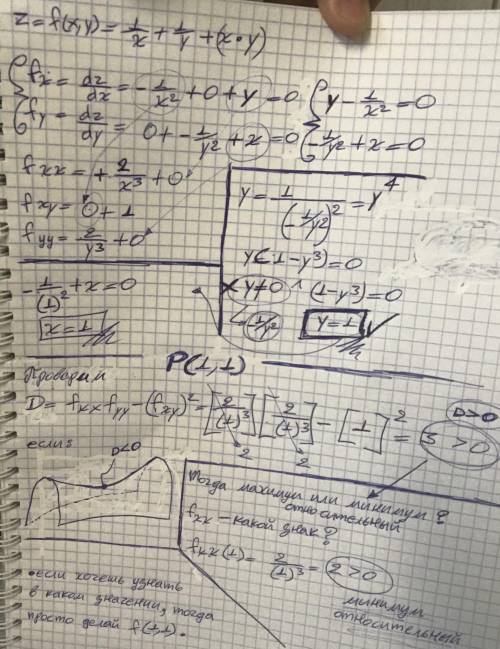 z = f(x,y) = 1/x + 1/y + (x·y)
fx = dz/dx = -1/x² + 0 + y = 0
fy = dz/dy = 0 + -1/y² + x = 0
y - 1/x² = 0
-1/y² + x = 0
fxx = + 2/x³ + 0
fxy = 0 + 1
fyy = 2/y³ + 0
y = 1/(-1/y²)² = y⁴
y(1-y³) = 0
y≠0 ^ (1-y³) = 0
(1/y²)
y = 1
-1/(1)² + x = 0
x = 1
P(1,1)
Проверим
D = fxx fyy - (fxy)² = [2/(1)³] [2/(1)³] - [1]² = 3 > 0
2
2
D>0
если
D<0
Тогда максимум или минимум?
относительный
fxx - какой знак?
fxx(1) = 2/(1)³ = 2>0
минимум
относительный
• если хочешь узнать
в каком значении, тогда
просто делай f(1,1).